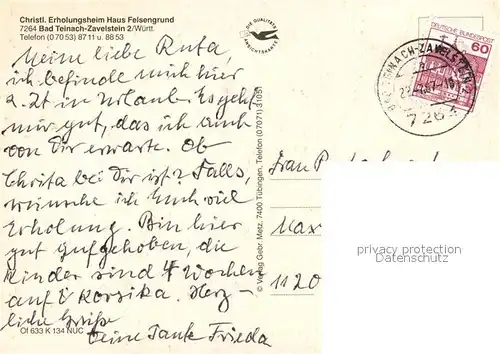 Christl. Erholungsheim Haus Felsengrund
7264 Bad Teinach-Zavelstein 2/Württ.
Telefon (0 70 53) 87 11 u. 88 53
Meine liebe Ruta,
ich befinde mich hier
z. Zt in Urlaub. Es geht
mir gut, das ich auch
von Dir erwarte. Ob
Christa bei Dir ist? Falls,
wünsche ich Euch viel
Erholung. Bin hier
gut aufgehoben, die
Kinder sind 4 Wochen
auf Korsika. Herz-
liche Grüße
Deine Tante Frieda
OI 633 K 134 NUC
DIE QUALITÄTS
ANSICHTSKARTE
© Verlag Gebr. Metz, 7400 Tübingen, Telefon (07071) 31051
DEUTSCHE BUNDESPOST
60
BAD TEINACH-ZAVELSTEIN 2
7263
Frau
1120
privacy protection
privacy protection